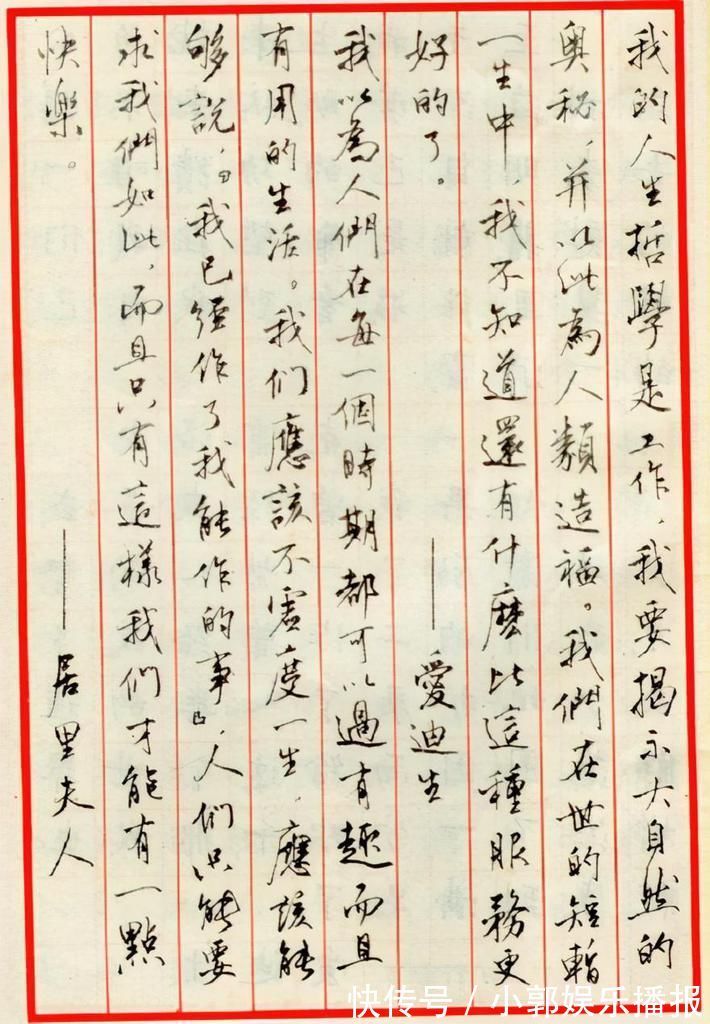 我的人生哲學是工作，我要揭示大自然的
奥秘，并以此為人類造福。我們在世的短暫
一生中，我不知道還有什麼比這種服務更
好的了。
——愛迪生
我以為人們在每一個時期都可以過有趣而且
有用的生活。我们應該不虚度一生，應該能
够說，『我已經作了我能作的事』，人们只能要
求我們如此，而且只有這樣我们才能有一點
快樂。
——居里夫人
快传号/小郭娱乐播报